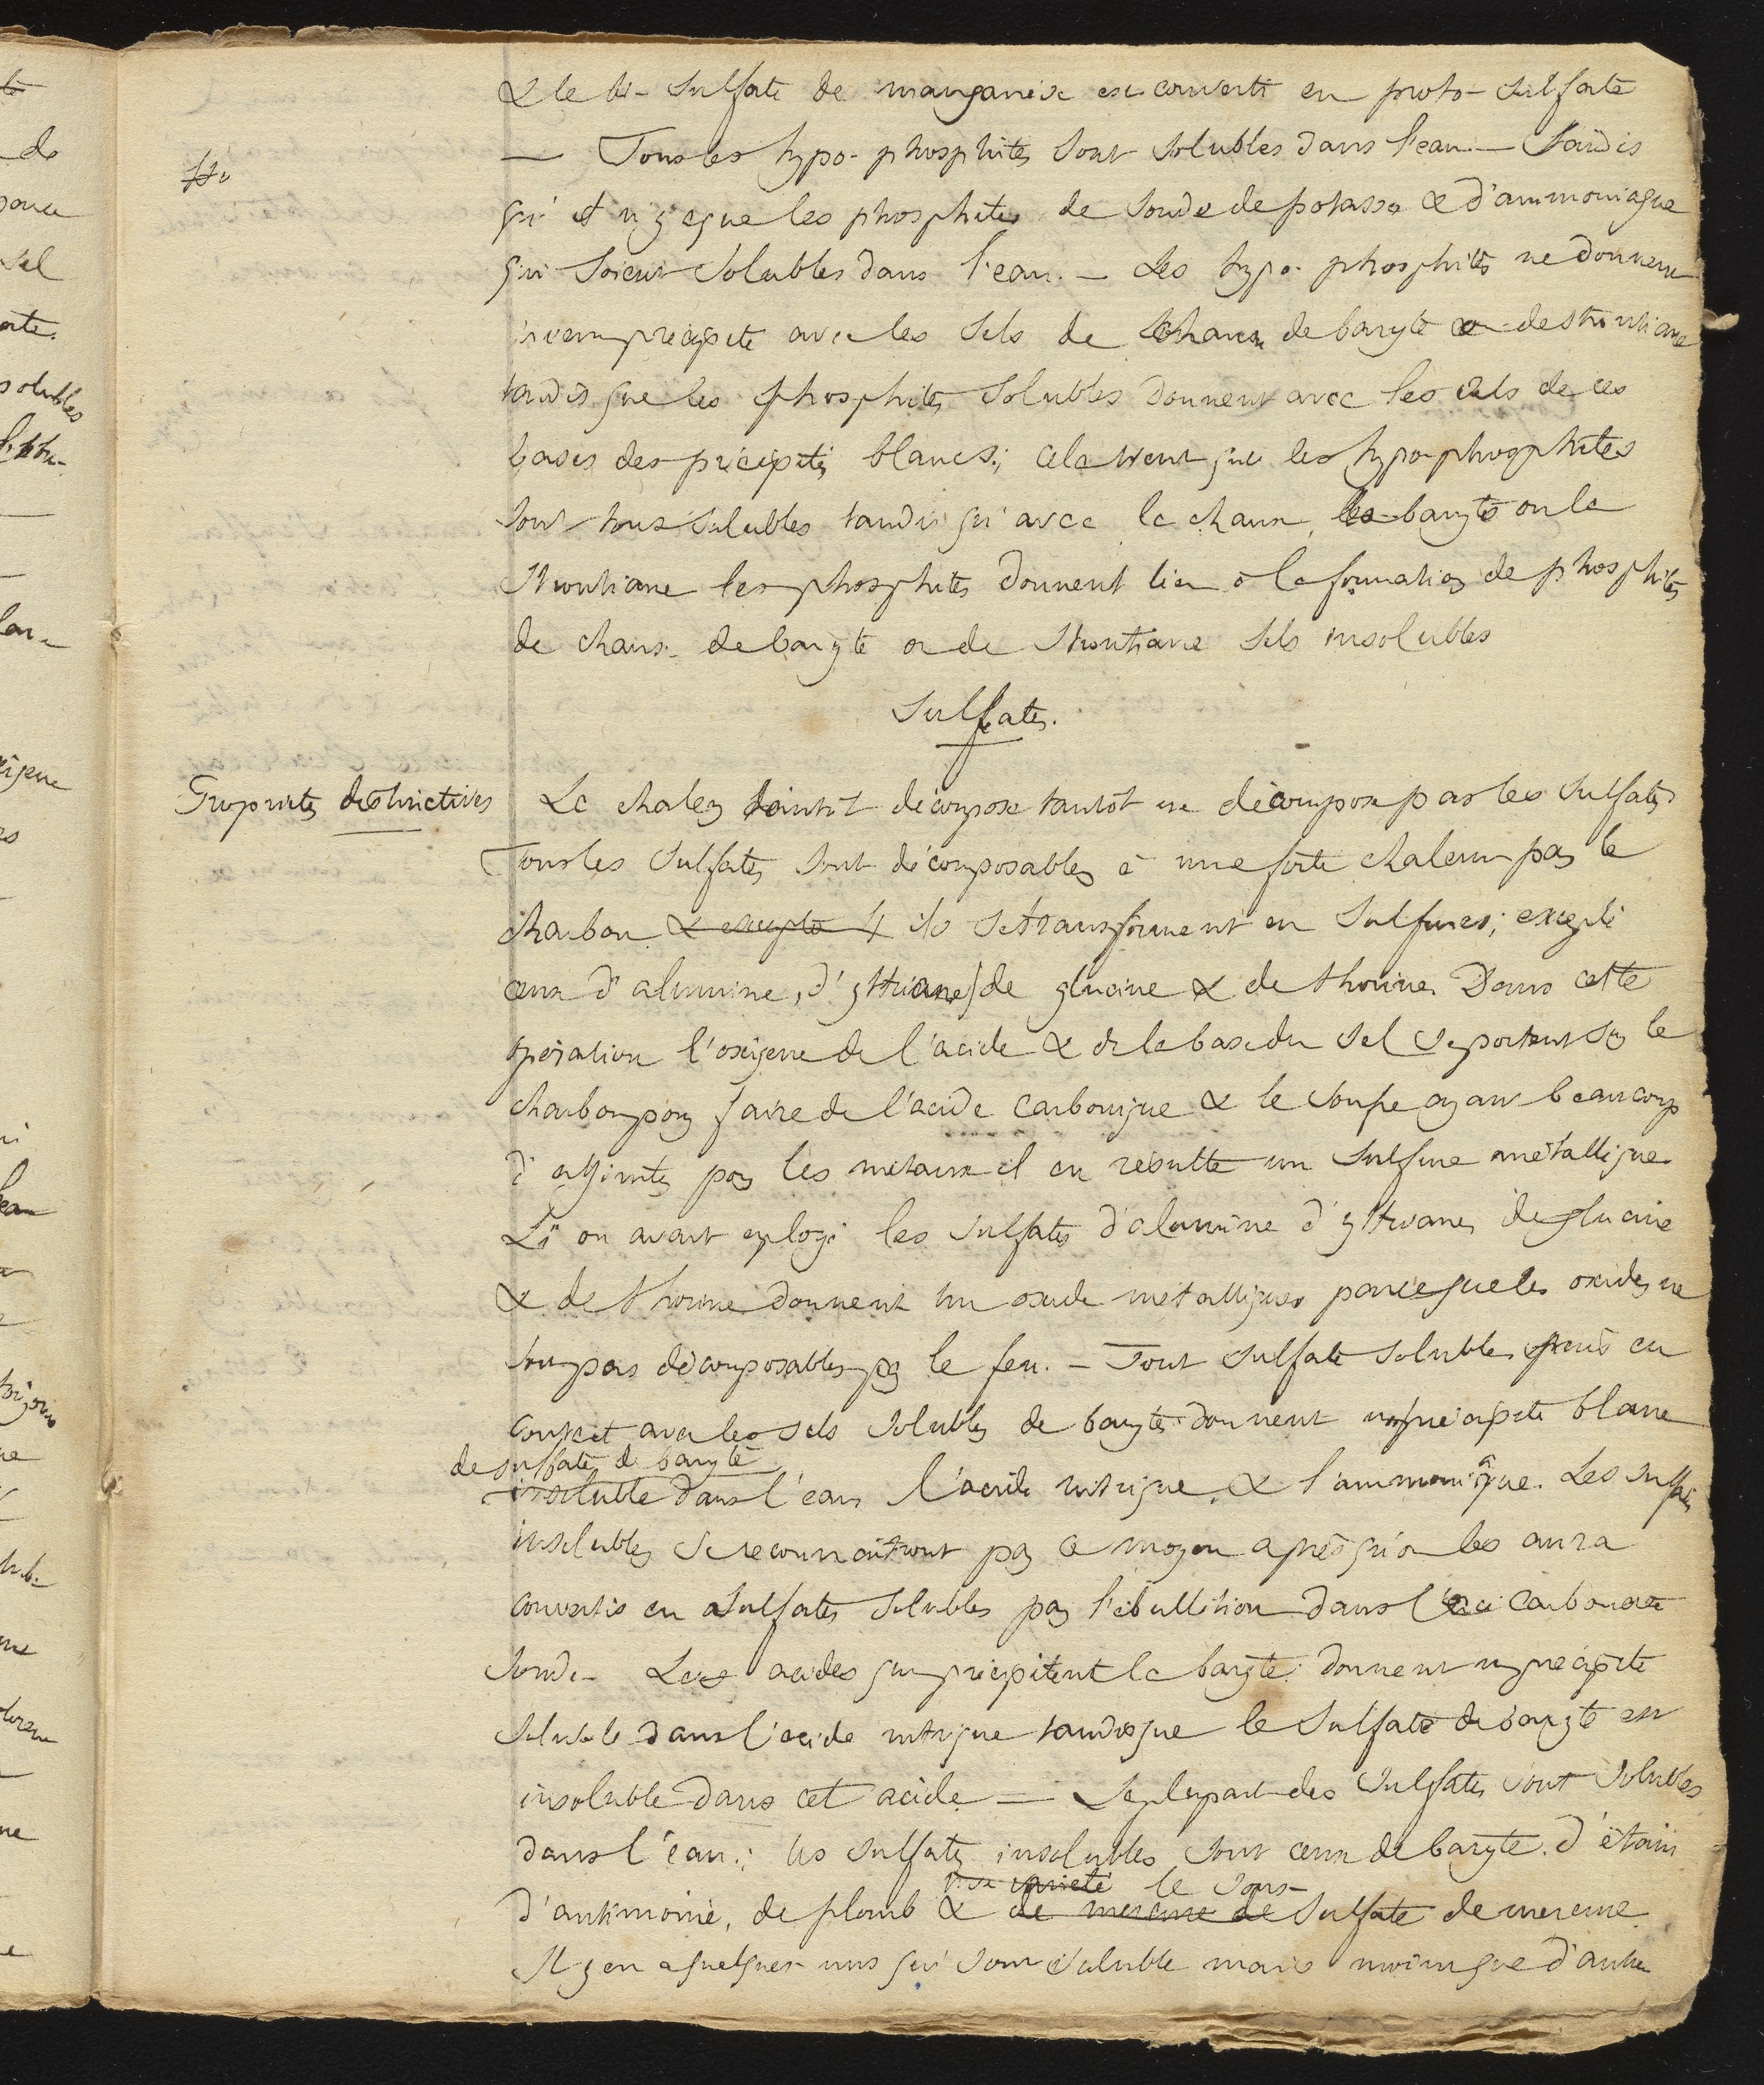 & le bi-sulfate de manganèse est converti en proto-sulfate
— Tous les hypo-phosphites sont solubles dans l'eau — tandis
qu'il n'y a que les phosphites de soude de potasse & d'ammoniaque
qui soient solubles dans l'eau. — Les hypo-phosphites ne donnent
aucun précipité avec les sels de chaux de baryte ou de strontiane
tandis que les phosphites solubles donnent avec les sels de ces
bases des précipités blancs; cela vient que les hypo-phosphites
sont tous solubles tandis qu'avec la chaux, la baryte ou la
strontiane les phosphites donnent lieu à la formation de phosphites
de chaux de baryte ou de strontiane sels insolubles
Sulfates.
Propriétés distinctives
La chaleur tantôt décompose tantôt ne décompose pas les sulfates
Tous les sulfates sont décomposables à une forte chaleur par le
charbon & excepté 4 ils se transforment en sulfures; excepté
ceux d'alumine, d'yttriane, de glucine & de thorine. Dans cette
opération l'oxigene de l'acide & de la base du sel se portent sur le
charbon pour faire de l'acide carbonique & le soufre ayant beaucoup
d'affinité pour les métaux il en résulte un sulfure métallique
Si on avait employé les sulfates d'alumine d'yttriane, de glucine
& de thorine donnent un oxide métallique parceque les oxides ne
sont pas décomposables par le feu. — Tout sulfate soluble mis en
contact avec les sels solubles de baryte donnent un précipité blanc
de sulfate de baryte
insoluble dans l'eau l'acide nitrique & l'ammoniaque. Les sulfates
insolubles se reconnaîtront par ce moyen après qu'on les aura
convertis en sulfates solubles par l'ébullition dans le carbonate
soude. Les acides qui précipitent la baryte donnent un précipité
soluble dans l'acide nitrique tandisque le sulfate de baryte est
insoluble dans cet acide — La plupart des sulfates sont solubles
dans l'eau; les sulfates insolubles sont ceux de baryte. d'étain
le sous-
d'antimoine, de plomb & de mercure de sulfate de mercure
Il y en a quelques-uns qui sont soluble mais moins que d'autre